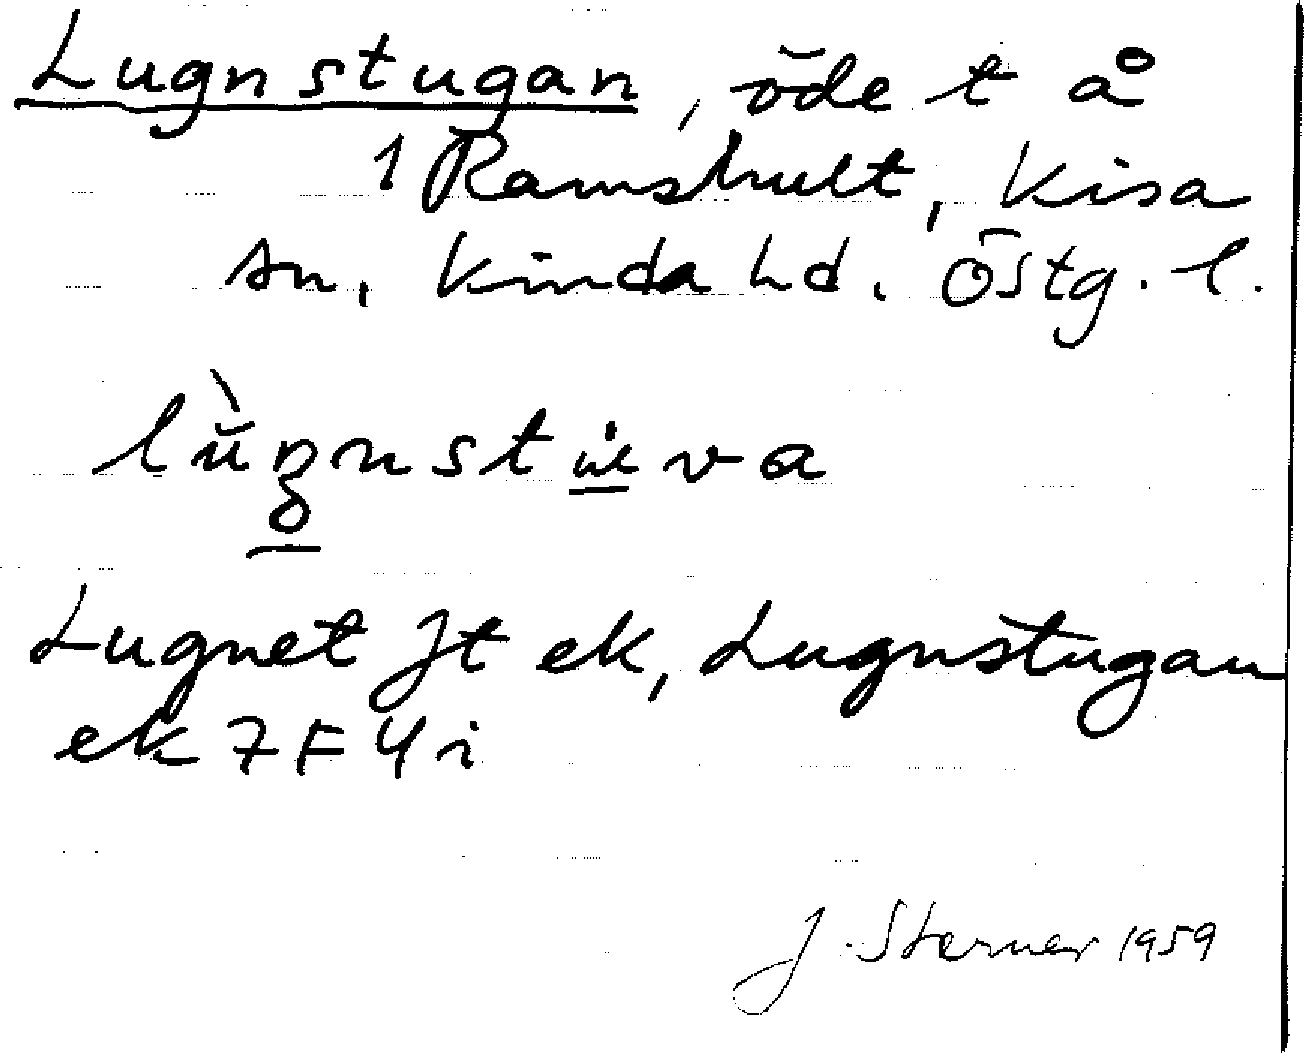 Lugnstugan, öde t å
1 Ramshult, Kisa
sn, Kinda hd. Östg. l.
Lugnet Jt ek, Lugnstugan
ek 7F4i
J. Sterner 1959